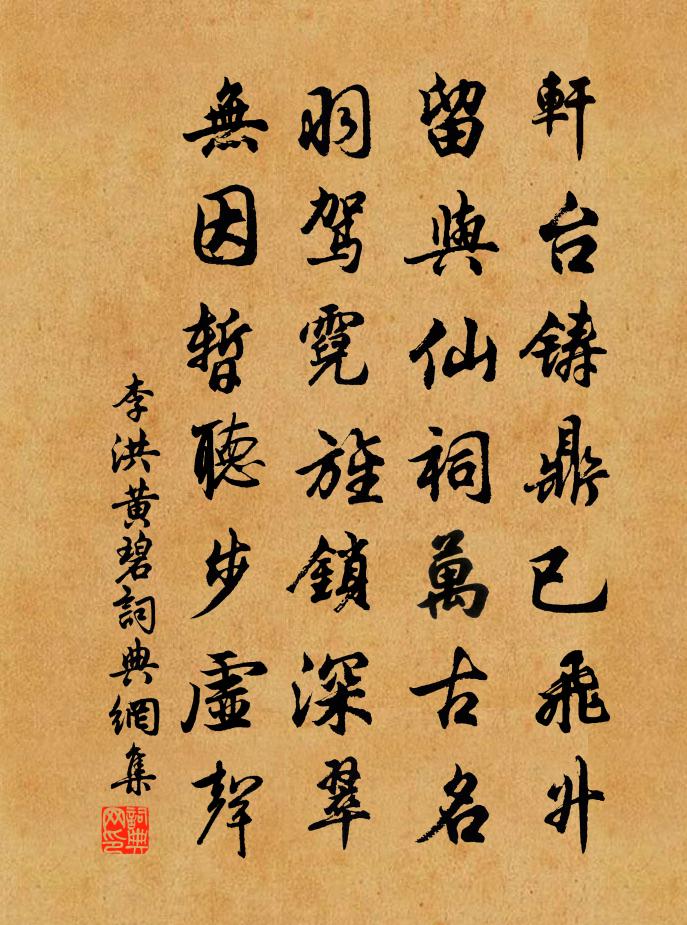 軒台鑄鼎已飛升
留與仙祠萬古名
羽駕霓旌鎖深翠
無因暫聽步虛聲
李洪黄碧詞典網集
詞典网印